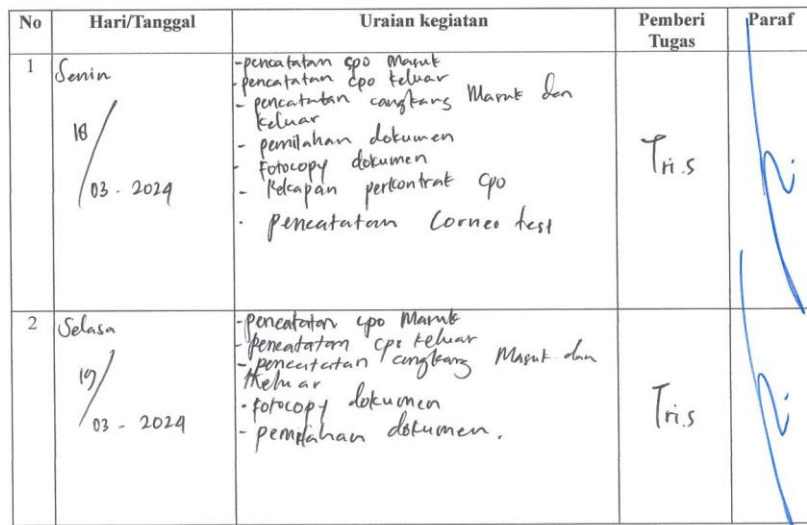 No Hari/Tanggal Uraian kegiatan Pemberi Tugas Paraf
1 Senin
18/03 - 2024
- pencatatan cpo Masuk
- pencatatan cpo keluar
- pencatatan cangkang Masuk dan
keluar
- pemilahan dokumen
- Fotocopy dokumen
- Rekapan perkontrak cpo
- pencatatan Cornea test
Tri.s
2 Selasa
19/03 - 2024
- pencatatan cpo Masuk
- pencatatan cpo keluar
- pencatatan cangkang Masuk dan
keluar
- fotocopy dokumen
- pemilahan dokumen.
Tri.s